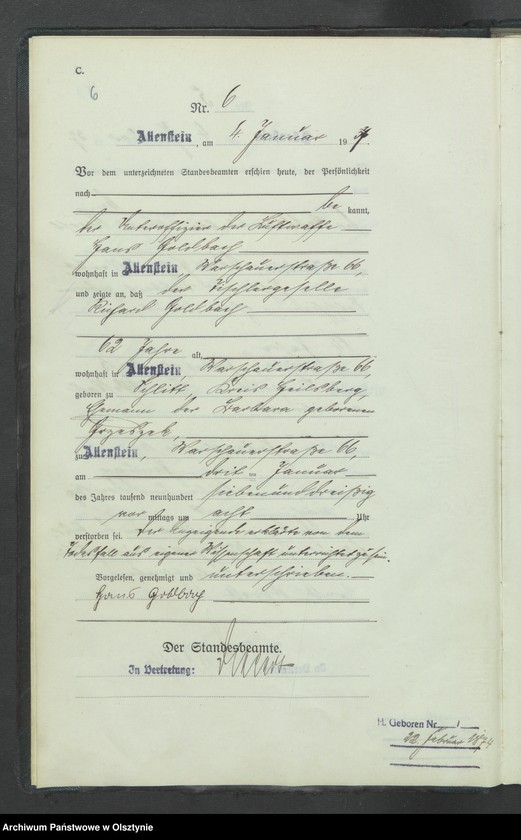 C.
6
Nr. 6
Allenstein, am 4. Januar 1937.
Vor dem unterzeichneten Standesbeamten erschien heute, der Persönlichkeit
nach
be kannt,
der Unteroffizier der Luftwaffe
Hans Goldbach
wohnhaft in Allenstein, Warschauerstraße 66,
und zeigte an, daß der Tischlergeselle
Richard Goldbach
62 Jahre alt,
wohnhaft in Allenstein, Warschauerstraße 66
geboren zu Schlitt, Kreis Heilsberg,
Ehemann der Barbara geborenen
zu Allenstein, Warschauerstraße 66,
am drit en Januar
des Jahres tausend neunhundert siebenunddreißig
vor mittags um acht Uhr
verstorben sei. Der Anzeigende erklärte von dem
Todesfall aus eigener Wissenschaft unterrichtet zu sein.
Vorgelesen, genehmigt und unterschrieben.
Hans Goldbach
Der Standesbeamte.
In Vertretung:
H. Geboren Nr.
22. Februar 1874
Archiwum Państwowe w Olsztynie